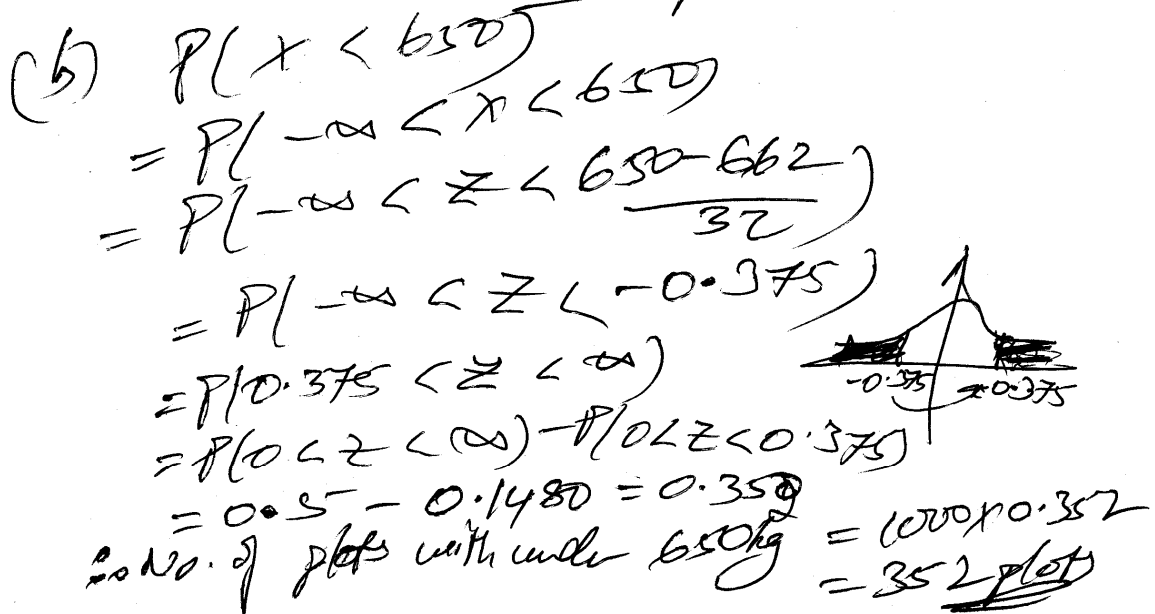 (b) P(x < 650)
= P(-∞ < x < 650)
= P(-∞ < z < 650-662/32)
= P(-∞ < z < -0.375)
-0.375 0.375
= P(0.375 < z < ∞)
= P(0 < z < ∞) - P(0 < z < 0.375)
= 0.5 - 0.1480 = 0.352
∴ No. of plots with under 650kg = 1000 x 0.352
= 352 plots